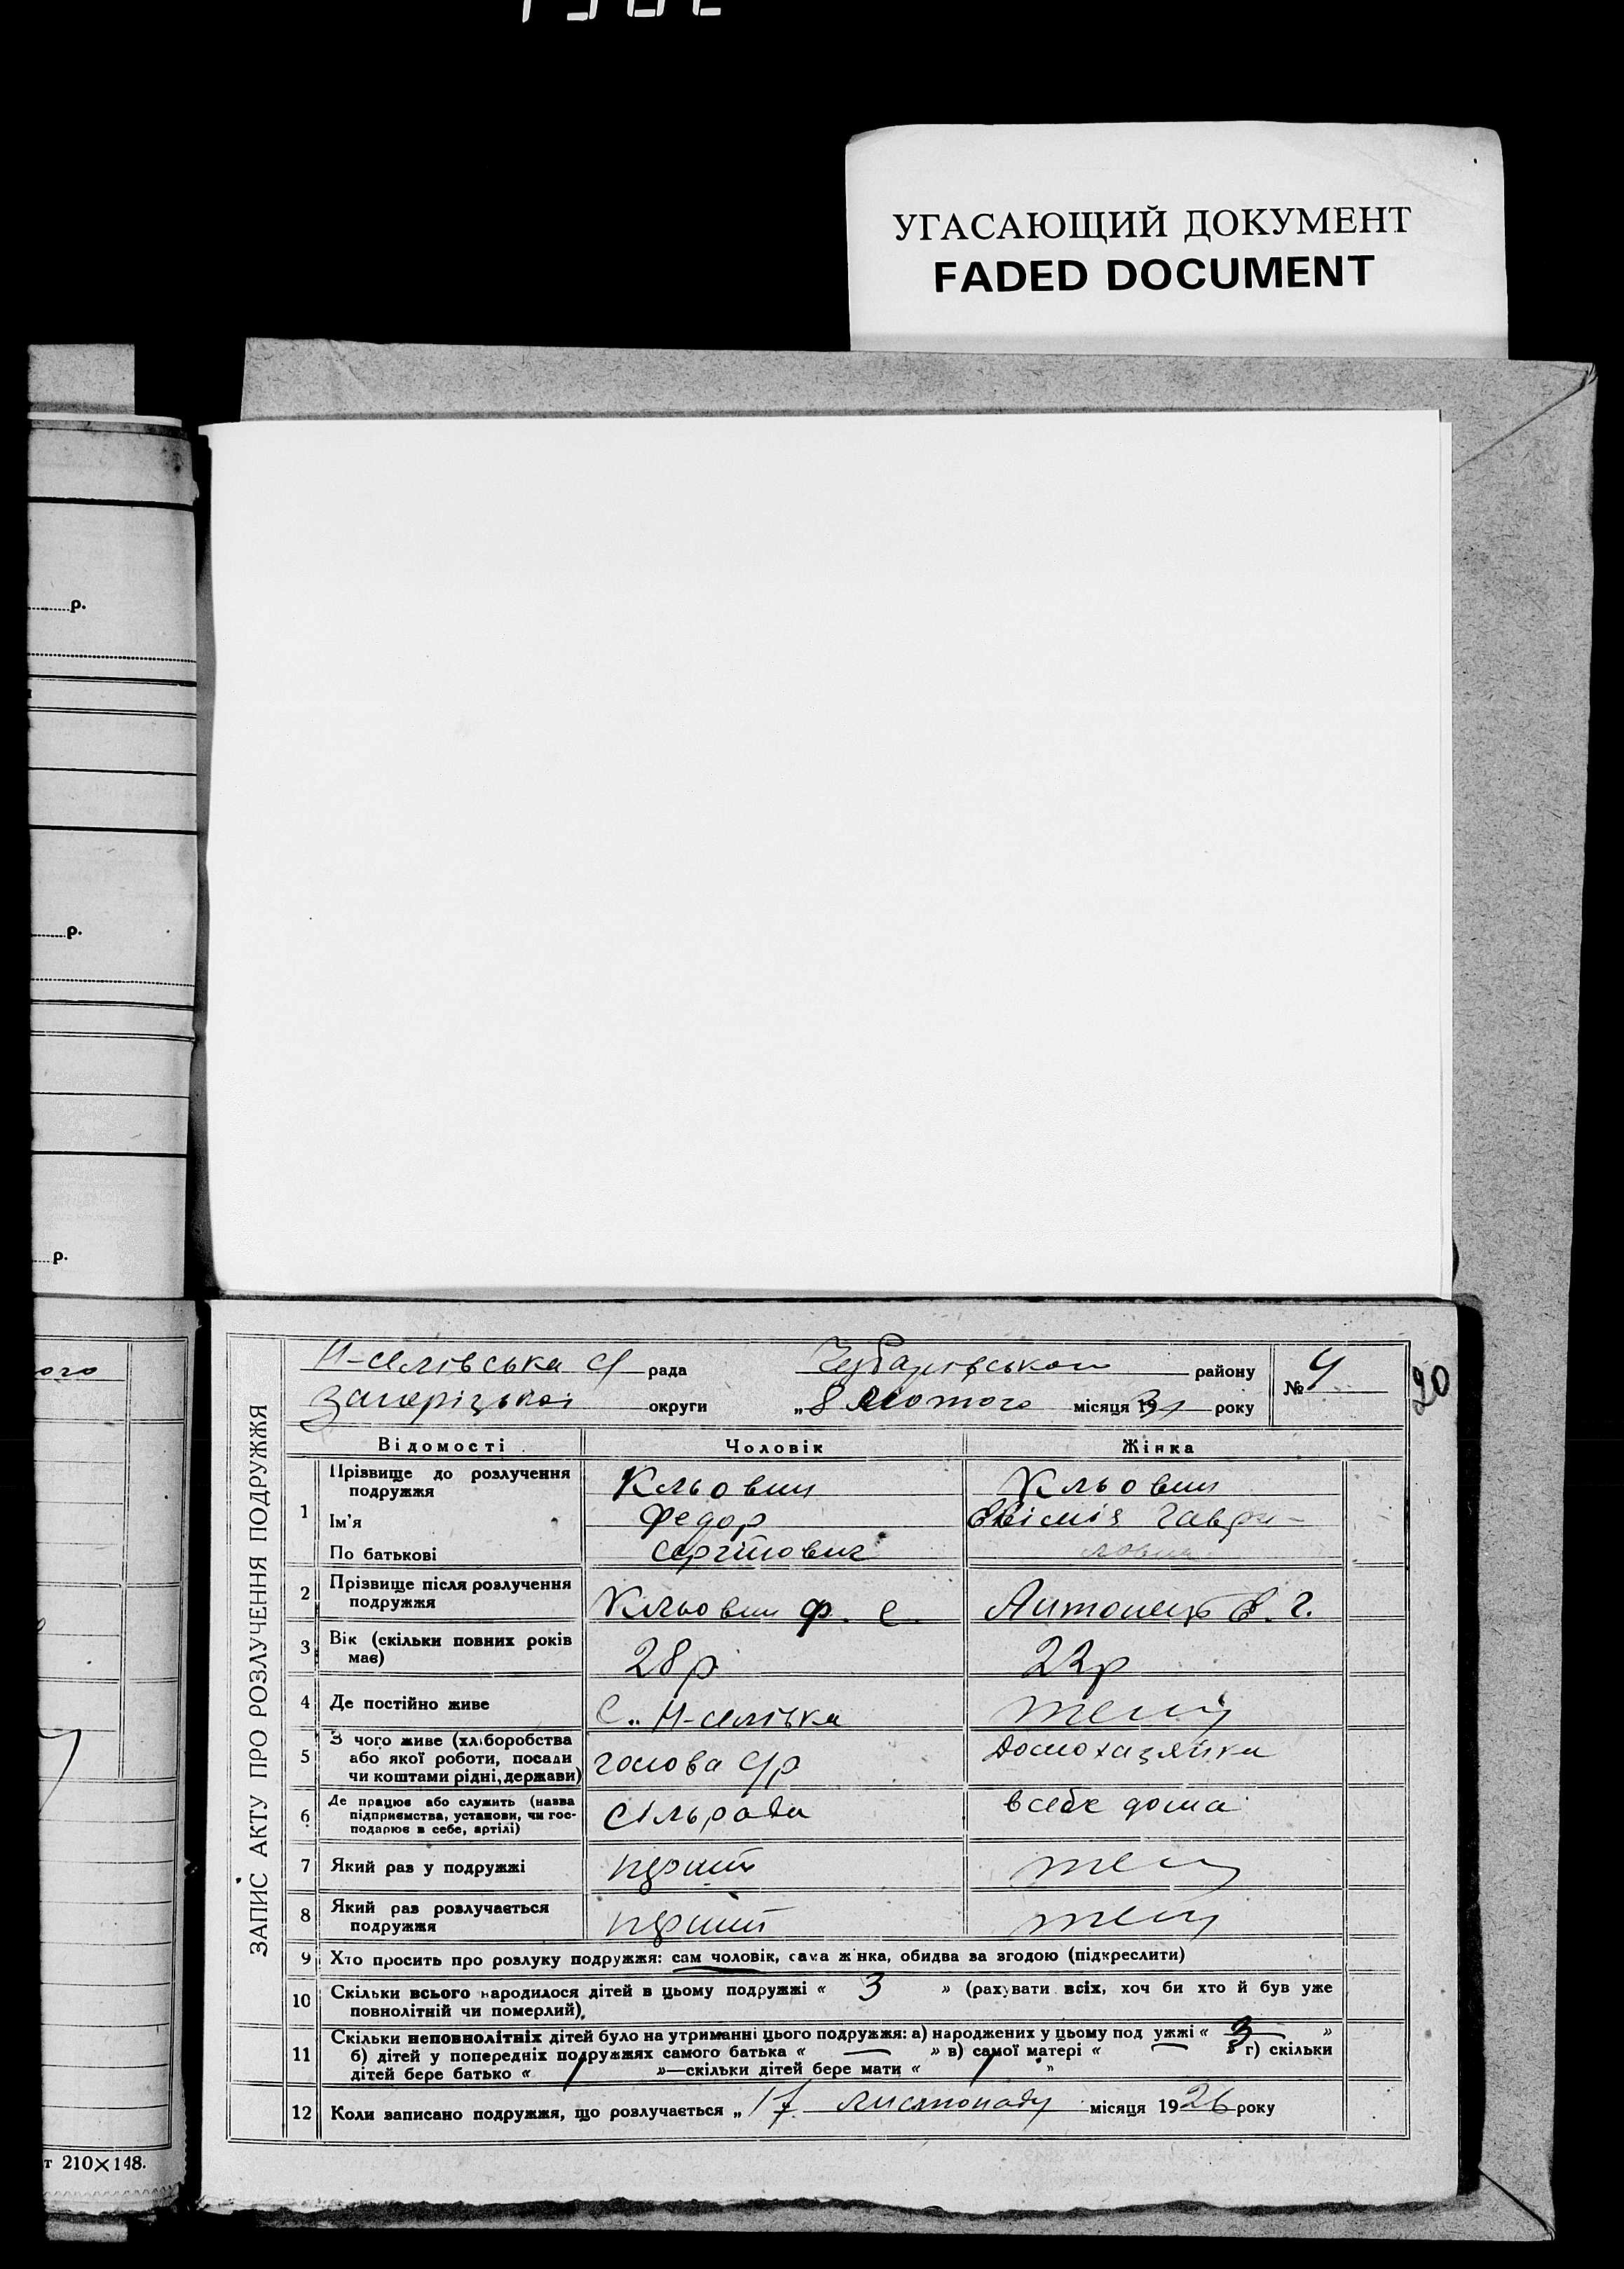 УГАСАЮЩИЙ ДОКУМЕНТ
FADED DOCUMENT
р.
р.
р.
ого
т 210×148.
20
ЗАПИС АКТУ ПРО РОЗЛУЧЕННЯ ПОДРУЖЖЯ
Н-селівська с/ рада Чубарівського району № 4
Запорізької округи „8 лютого місяця 1931 року
Відомості Чоловік Жінка
1 Прізвище до розлучення подружжя Кльовин Кльовин
Ім'я Федор Євімія Гаври-
По батькові Сергійович ловна
2 Прізвище після розлучення подружжя Кльовин Ф. С. Антонець Є. Г.
3 Вік (скільки повних років має) 28 р 22 р
4 Де постійно живе С. Н-селівка
5 З чого живе (хліборобства або якої роботи, посади чи коштами рідні, держави) голова с/р домохазяйка
6 Де працює або служить (назва підприємства, установи, чи господарює в себе, артілі) сільрада в себе дома
7 Який раз у подружжі перший
8 Який раз розлучається подружжя перший
9 Хто просить про розлуку подружжя: сам чоловік, сама жінка, обидва за згодою (підкреслити)
10 Скільки всього народилося дітей в цьому подружжі « 3 » (рахувати всіх, хоч би хто й був уже
повнолітній чи померлий).
11 Скільки неповнолітніх дітей було на утриманні цього подружжя: а) народжених у цьому подружжі « 3 »
б) дітей у попередніх подружжях самого батька « — » в) самої матері « — » г) скільки
дітей бере батько « / »—скільки дітей бере мати « / »
12 Коли записано подружжя, що розлучається „17 листопаду місяця 1926 року